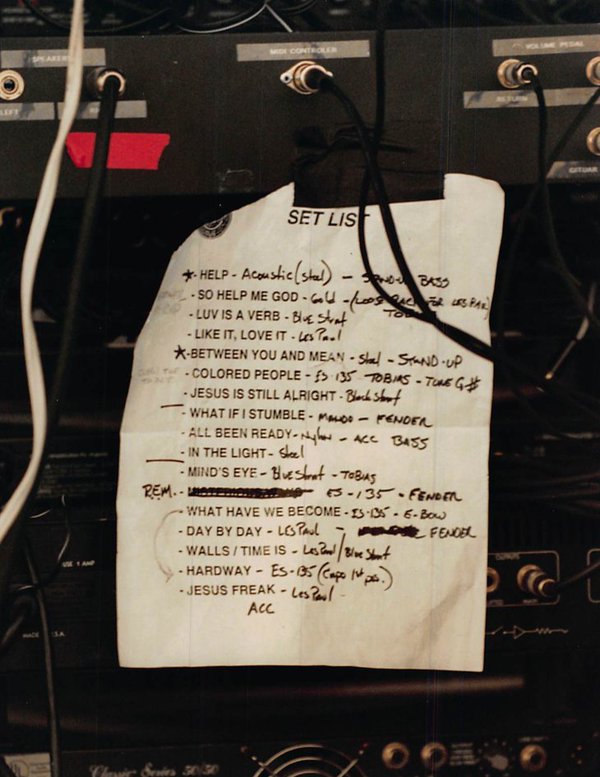 SPEAKERS
MIDI CONTROLER
VOLUME PEDAL
LEFT
RETURN
GITUAR
SET LIST
* - HELP - Acoustic (steel) - STAND-UP BASS
- SO HELP ME GOD - Gold - (LOOSE BACK FOR LES PAUL)
- LUV IS A VERB - Blue Strat TOBIAS
- LIKE IT, LOVE IT - Les Paul
* - BETWEEN YOU AND MEAN - steel - STAND-UP
- COLORED PEOPLE - ES-135 TOBIAS - TUNE G#
- JESUS IS STILL ALRIGHT - Black Strat
- WHAT IF I STUMBLE - MANDO - FENDER
- ALL BEEN READY - Nylon - ACC BASS
- IN THE LIGHT - Steel
- MIND'S EYE - Blue Strat - TOBIAS
R.E.M. - ES-135 - FENDER
- WHAT HAVE WE BECOME - ES-135 - E-BOW
- DAY BY DAY - LES PAUL - FENDER
- WALLS / TIME IS - Les Paul / Blue Strat
- HARDWAY - ES-135 (Capo 1st pos.)
- JESUS FREAK - Les Paul -
ACC
USE 1 AMP
MADE U.S.A.
OUTPUTS
Classic Series 50/50